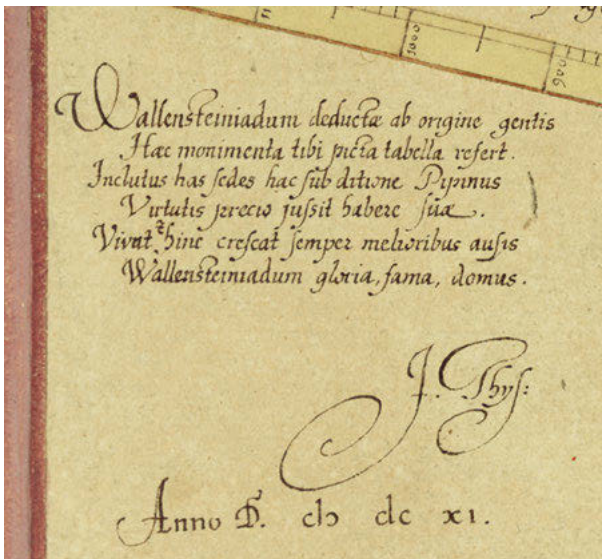 1000
900
Wallensteiniadum deductæ ab origine gentis
Hæc monimenta tibi picta tabella refert.
Inclutus has sedes hac sub ditione Pipinus
Virtutis precio jussit habere suæ.
Vivat & hinc crescat semper melioribus ausis
Wallensteiniadum gloria, fama, domus.
J. Thys:
Anno D. cIɔ dc XI.